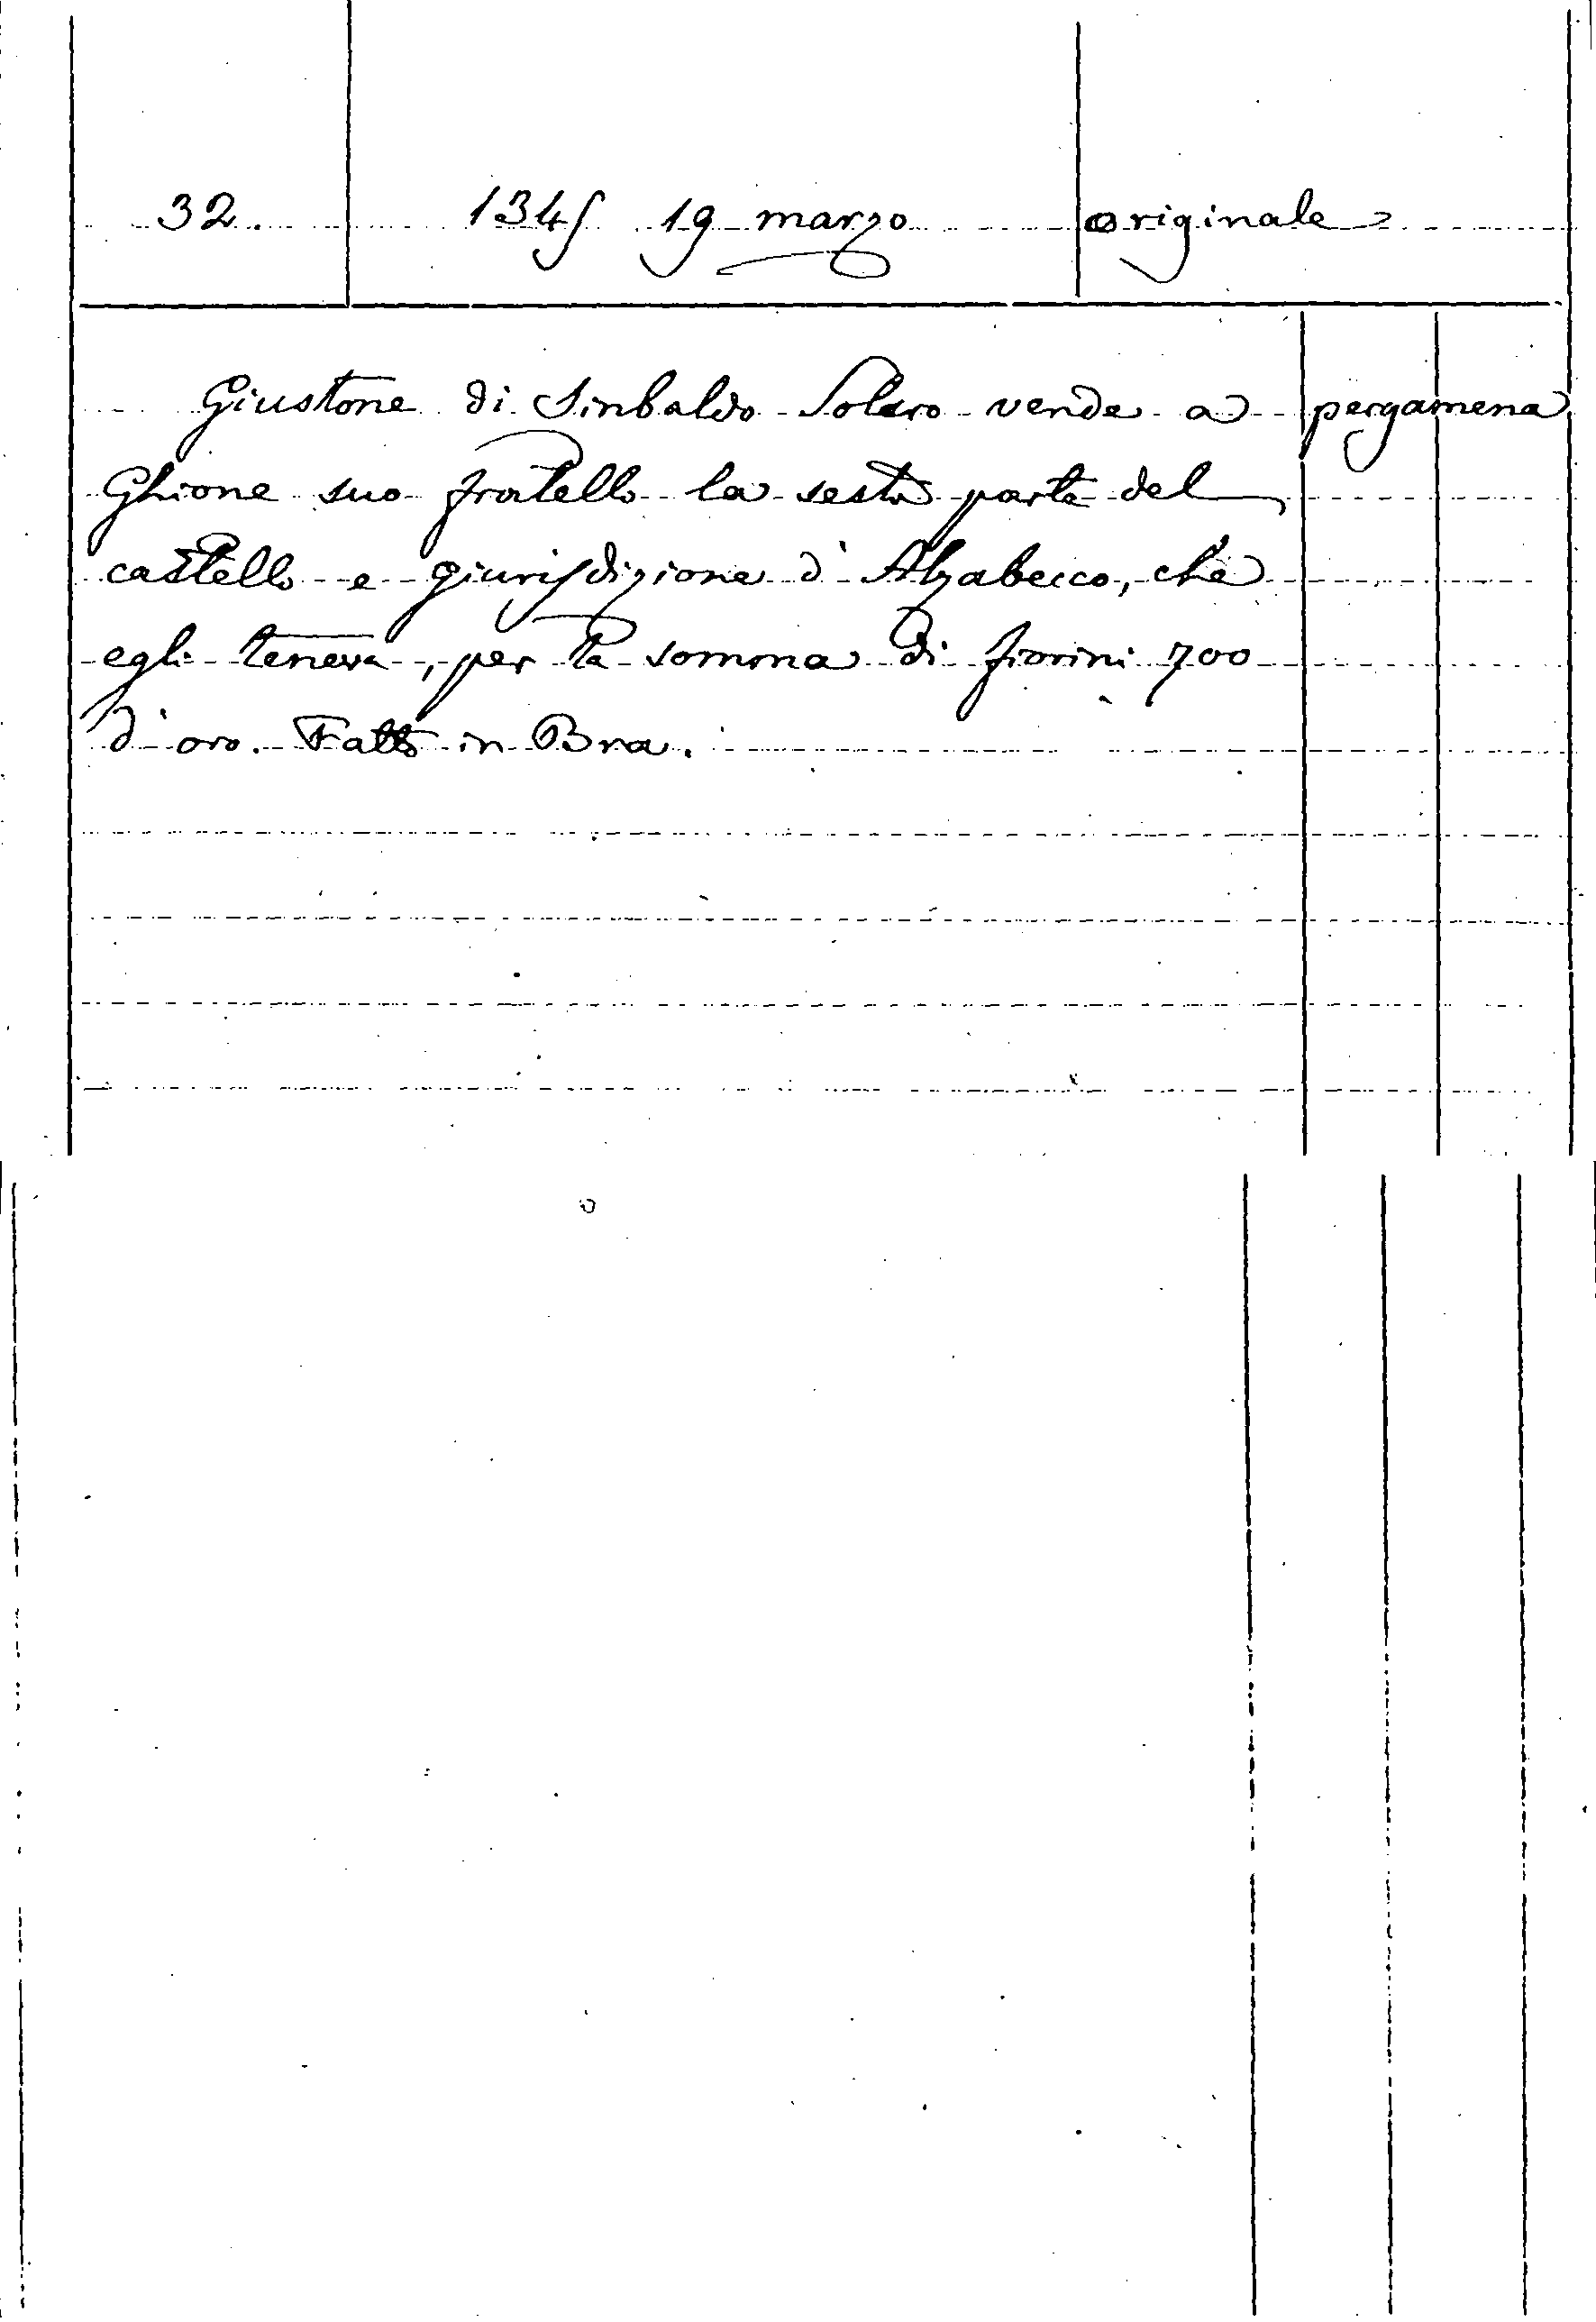 32. 1345 19 marzo originale
Giustone di Sinbaldo Solero vende a pergamena
Ghione suo fratello la sesta parte del
castello e giurisdizione d'Alzabecco, che
egli teneva, per la somma di fiorini 700
d'oro. Fatto in Bra.